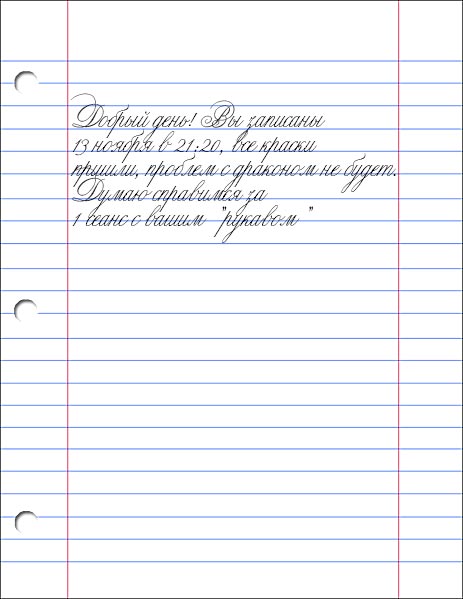 Добрый день! Вы записаны
13 ноября в 21:20, все краски
пришли, проблем с драконом не будет.
Думаю справимся за
1 сеанс с вашим "рукавом "